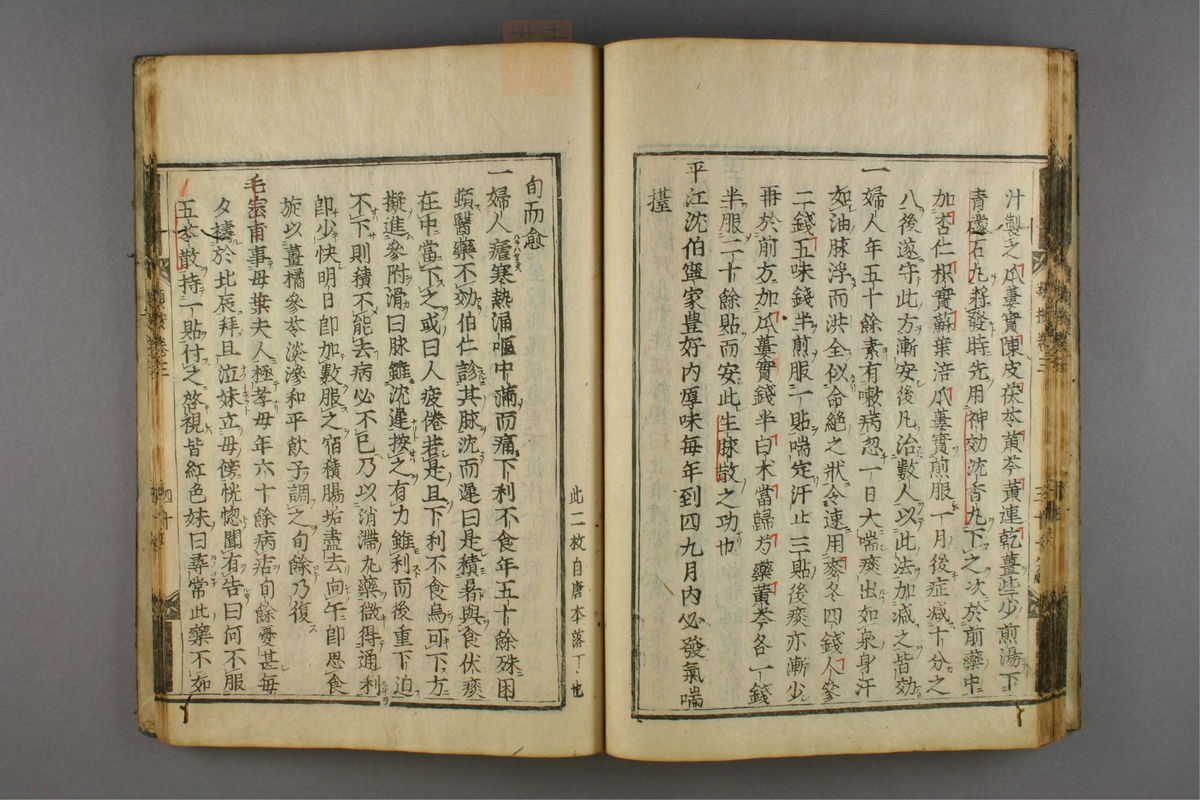 汁製之瓜蔞實陳皮茯苓黄芩黄連乾薑些少煎湯下
青礞石丸痰發時先用神効沈香丸下之次於前藥中
加杏仁枳實蘇葉涪瓜蔞實煎服一月後症减十分之
八後遂守此方漸安後凡治數人以此法加减之皆効
一婦人年五十餘素有嗽病忽一日大喘痰出如泉身汗
如油脉浮而洪全似命絶之狀令速用麥冬四錢人參
二錢五味錢半煎服一貼喘定汗止三貼後痰亦漸少
再於前方加瓜蔞實錢半白术當歸芍藥黄芩各一錢
半服二十餘貼而安此生脉散之功也
平江沈伯寧家豊好内厚味每年到四九月内必發氣喘
擡
此二枚自唐本落丁也
旬而愈
一婦人瘧寒熱涌嘔中滿而痛下利不食年五十餘殊困
頓醫藥不効伯仁診其脉沈而遲曰是積暑與食伏痰
在中當下之或曰人疲倦若是且下利不食烏可下方
擬進參附滑曰脉雖沈遲按之有力雖利而後重下迫
不下則積不能去病必不已乃以消滯丸藥微得通利
即少快明日即加數服之宿積腸垢盡去向午即思食
旋以薑橘參苓淡滲和平飲子調之旬餘乃復
毛宓甫事母葉夫人極孝母年六十餘病痁旬餘憂甚每
夕禱於北辰拜且泣妹立母傍恍惚聞有告曰何不服
五苓散持一貼付之啓視皆紅色妹曰尋常此藥不如